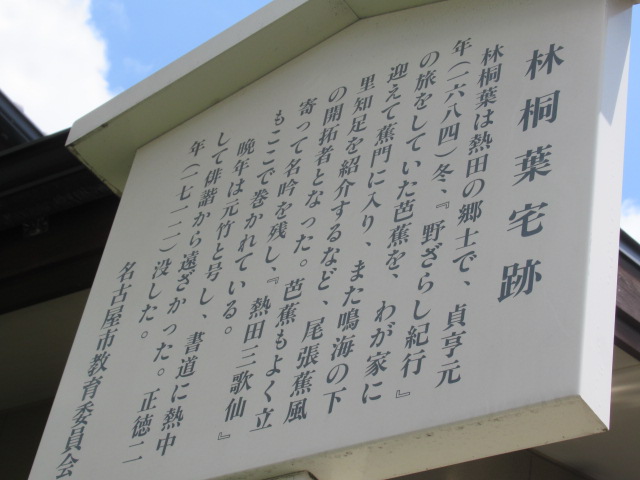 林桐葉宅跡
林桐葉は熱田の郷士で、貞亨元
年(一六八四)冬、『野ざらし紀行』
の旅をしていた芭蕉を、わが家に
迎えて蕉門に入り、また鳴海の下
里知足を紹介するなど、尾張蕉風
の開拓者となった。芭蕉もよく立
寄って名吟を残し、『熱田三歌仙』
もここで巻かれている。
晩年は元竹と号し、書道に熱中
して俳諧から遠ざかった。正徳二
年(一七一二)没した。
名古屋市教育委員会